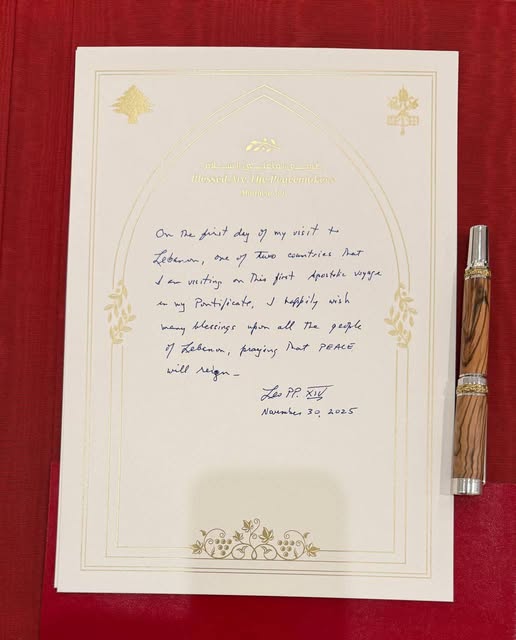 Blessed Are The Peacemakers
On the first day of my visit to
Lebanon, one of two countries that
I am visiting on this first Apostolic voyage
in my Pontificate, I happily wish
many blessings upon all the people
of Lebanon, praying that PEACE
will reign_
Leo PP. XIV
November 30, 2025